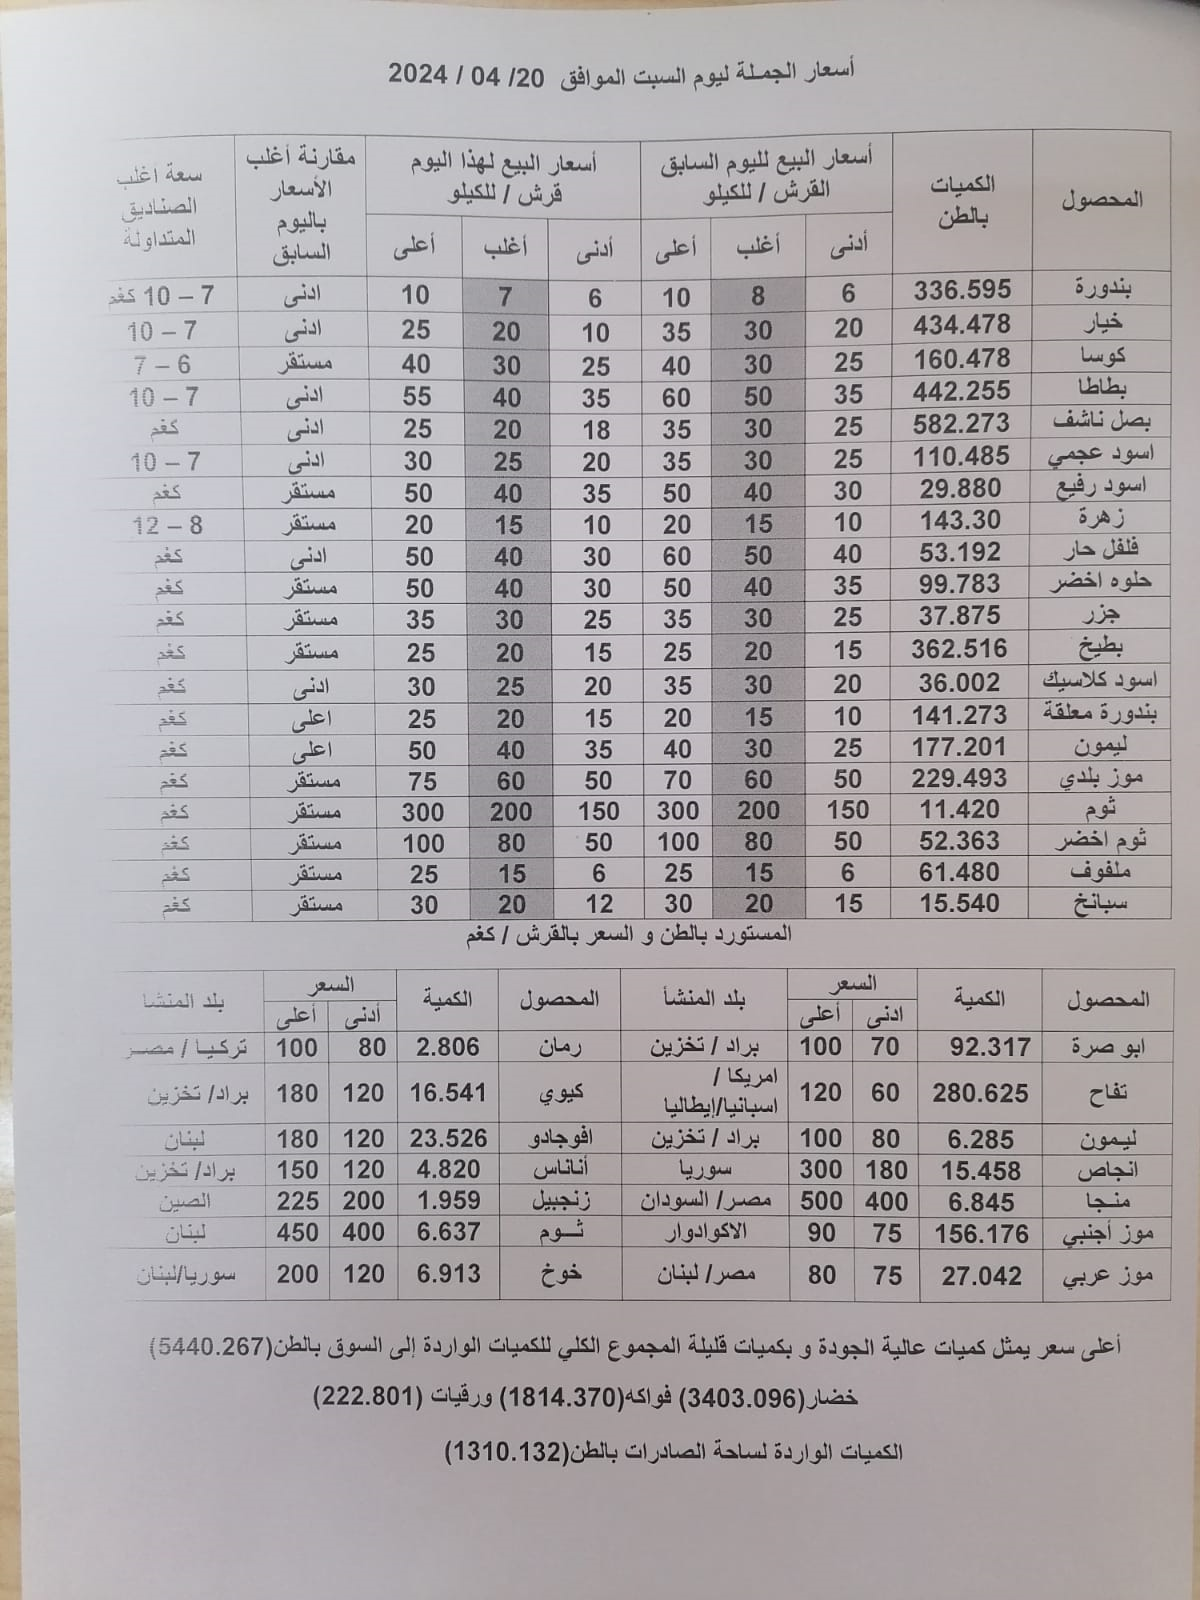 أسعار الجملة ليوم السبت الموافق 20/ 04 / 2024
المحصول الكميات بالطن أسعار البيع لليوم السابق القرش / للكيلو أسعار البيع لهذا اليوم قرش / للكيلو مقارنة أغلب الأسعار باليوم السابق سعة أغلب الصناديق المتداولة
أدنى أغلب أعلى أدنى أغلب أعلى
بندورة 336.595 6 8 10 6 7 10 ادنى 7 – 10 كغم
خيار 434.478 20 30 35 10 20 25 ادنى 7 – 10
كوسا 160.478 25 30 40 25 30 40 مستقر 6 – 7
بطاطا 442.255 35 50 60 35 40 55 ادنى 7 – 10
بصل ناشف 582.273 25 30 35 18 20 25 ادنى كغم
اسود عجمي 110.485 25 30 35 20 25 30 ادنى 7 – 10
اسود رفيع 29.880 30 40 50 35 40 50 مستقر كغم
زهرة 143.30 10 15 20 10 15 20 مستقر 8 – 12
فلفل حار 53.192 40 50 60 30 40 50 ادنى كغم
حلوه اخضر 99.783 35 40 50 30 40 50 مستقر كغم
جزر 37.875 25 30 35 25 30 35 مستقر كغم
بطيخ 362.516 15 20 25 15 20 25 مستقر كغم
اسود كلاسيك 36.002 20 30 35 20 25 30 ادنى كغم
بندورة معلقة 141.273 10 15 20 15 20 25 اعلى كغم
ليمون 177.201 25 30 40 35 40 50 اعلى كغم
موز بلدي 229.493 50 60 70 50 60 75 مستقر كغم
ثوم 11.420 150 200 300 150 200 300 مستقر كغم
ثوم اخضر 52.363 50 80 100 50 80 100 مستقر كغم
ملفوف 61.480 6 15 25 6 15 25 مستقر كغم
سبانخ 15.540 15 20 30 12 20 30 مستقر كغم
المستورد بالطن و السعر بالقرش / كغم
المحصول الكمية السعر بلد المنشأ المحصول الكمية السعر بلد المنشا
ادنى أعلى أدنى أعلى
ابو صرة 92.317 70 100 براد / تخزين رمان 2.806 80 100 تركيا / مصر
تفاح 280.625 60 120 امريكا / اسبانيا/إيطاليا كيوي 16.541 120 180 براد/ تخزين
ليمون 6.285 80 100 براد / تخزين افوجادو 23.526 120 180 لبنان
انجاص 15.458 180 300 سوريا أناناس 4.820 120 150 براد/ تخزين
منجا 6.845 400 500 مصر/ السودان زنجبيل 1.959 200 225 الصين
موز أجنبي 156.176 75 90 الاكوادوار ثــوم 6.637 400 450 لبنان
موز عربي 27.042 75 80 مصر/ لبنان خوخ 6.913 120 200 سوريا/لبنان
أعلى سعر يمثل كميات عالية الجودة و بكميات قليلة المجموع الكلي للكميات الواردة إلى السوق بالطن(5440.267)
خضار(3403.096) فواكه(1814.370) ورقيات (222.801)
الكميات الواردة لساحة الصادرات بالطن(1310.132)